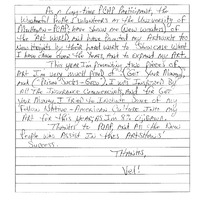 As a long-time PCAP Participant, the
Wonderful Profs / Volunteers at the University of
Michigan - PCAP have shown me (New wonders) of
the Art World, and have pointed my Artwork to
New Heights by their hard work to Showcase what
I have done over the years, and to expand my Art.
This year I'm promoting two pieces of
Art I'm very proud of: (Got Your Money)
and (Bison Sucks-Bros). I was inspired by
All the Insurance Commercials, and for Got
Your Money I tried to include some of my
fellow Native-American Culture into my
Art for this year, as I'm
Thanks to PCAP and All the New
People who Assist in this ARTSHOWS'
Success.
THANKS,